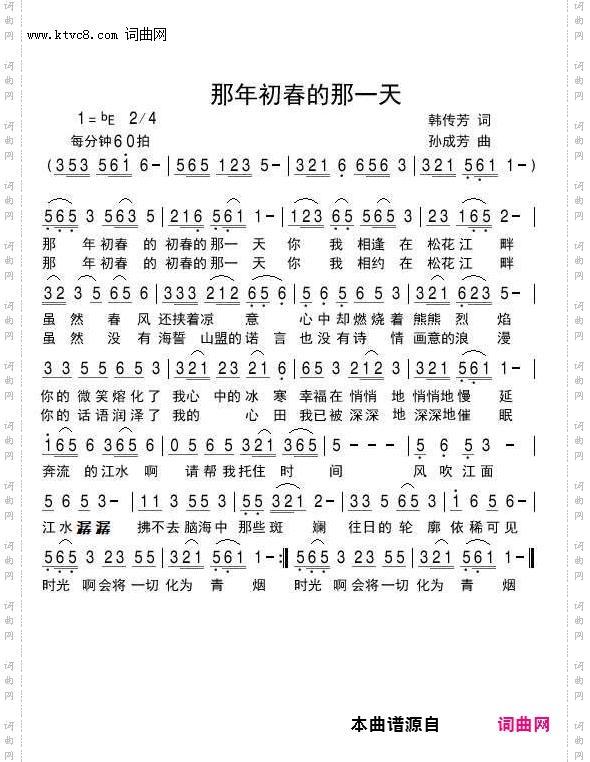 www.ktvc8.com 词曲网
那年初春的那一天
1=bE 2/4 韩传芳 词
每分钟60拍 孙成芳 曲
(353 561 6-|565 123 5-|321 6 656 3|321 561 1-)
565 3 563 5|216 561 1-|123 65 565 3|23 165 2-|
那 年 初春 的 初春的 那一 天 你 我 相逢 在 松花 江 畔
那 年 初春 的 初春的 那一 天 你 我 相约 在 松花 江 畔
32 3 5 65 6|333 212 65 6|5 6 5 6 5 3|321 623 5-|
虽 然 春 风 还挟着凉 意 心 中 却 燃 烧 着 熊熊 烈 焰
虽 然 没 有 海誓 山盟的 诺 言 也 没 有 诗 情 画意的 浪 漫
3 3 5 3 5 6 5|3 2 2 1 2 3|5 5 1 2 3 5 3|321 561 1-|
你的 微笑熔化了 我心 中的 冰 寒 幸福在 悄悄 地 悄悄地 慢 延
你的 话语润泽了 我的 心 田 我已被 深深 地 深深地 催 眠
165 6 365 6|0 5 6 5 321 365|5 - - -|5 6 5 3-|
奔流 的 江水 啊 请 帮 我 托住 时 间 风 吹 江 面
5 6 5 3-|11 3 55 3|55 321 2-|33 5 65 3|1 6 5 -|
江 水 潺 潺 拂不 去 脑海 中 那些 斑 斓 往日 的 轮 廓 依 稀 可 见
565 3 23 55|321 561 1-:|565 3 23 55|321 561 1-‖
时光 啊 会将 一切 化为 青 烟 时光 啊 会将 一切 化为 青 烟
本曲谱源自 词曲网